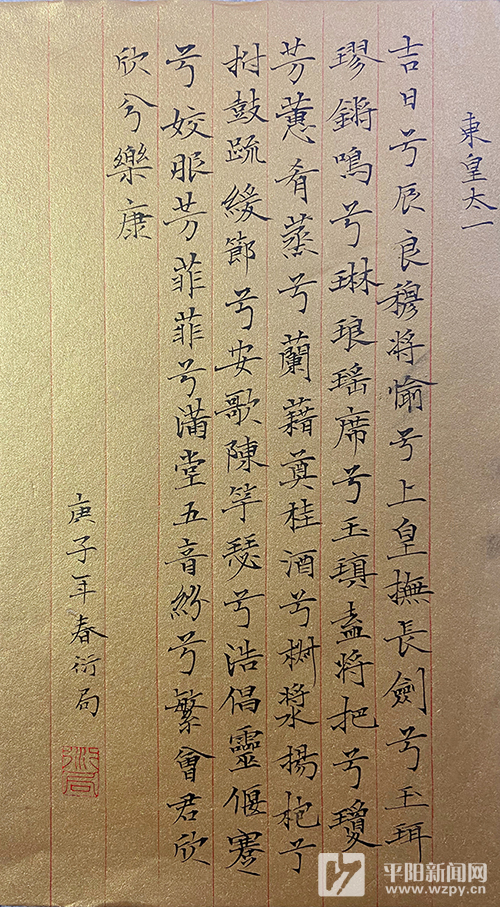 東皇太一
吉日兮辰良穆將愉兮上皇撫長劍兮玉珥
璆鏘鳴兮琳琅瑤席兮玉瑱盍將把兮瓊
芳蕙肴蒸兮蘭藉奠桂酒兮椒漿揚枹兮
拊鼓疏緩節兮安歌陳竽瑟兮浩倡靈偃蹇
兮姣服芳菲菲兮滿堂五音紛兮繁會君欣
欣兮樂康
庚子年春衍局
衍局
平阳新闻网
www.wzpy.cn